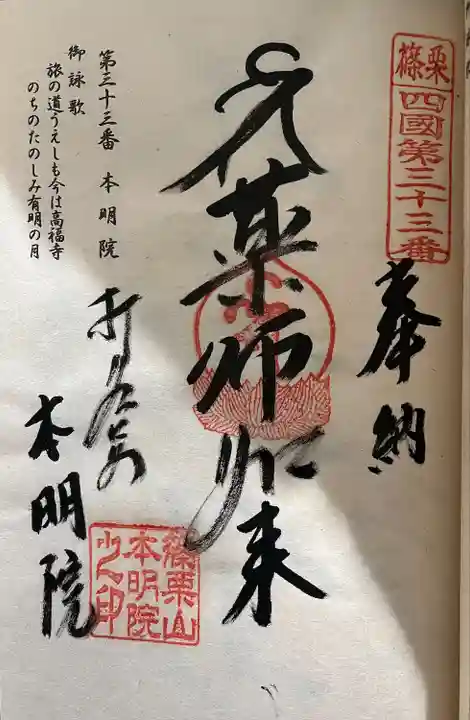 篠栗
四國第三十三番
奉納
薬師如来
第三十三番 本明院
御詠歌
旅の道うえしも今は高福寺
のちのたのしみ有明の月
本明院
篠栗山
本明院
之印